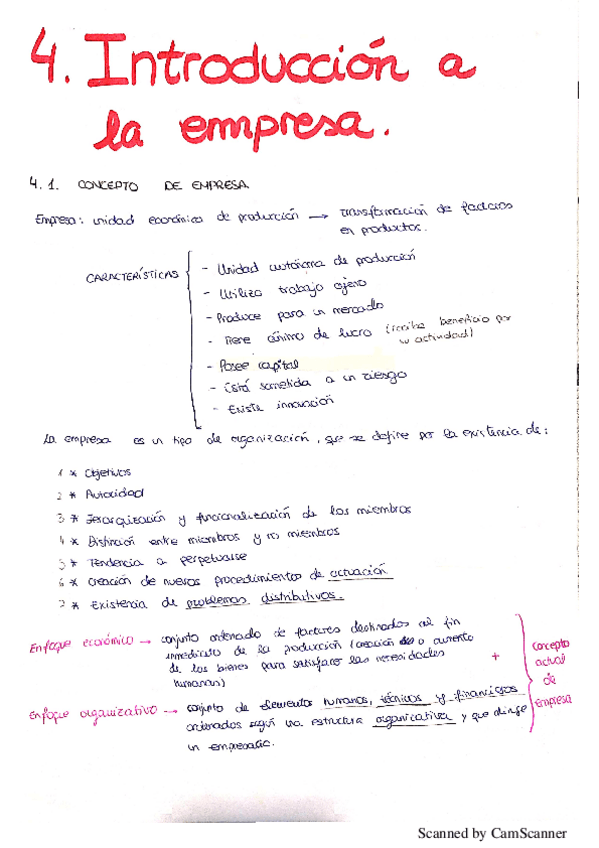 4. Introducción a
la empresa.
4.1. CONCEPTO DE EMPRESA
Empresa: unidad económica de producción → transformación de factores
en productos.
CARACTERÍSTICAS
- Unidad autónoma de producción
- Utiliza trabajo ajeno
- Produce para un mercado
- Tiene ánimo de lucro (recibe beneficio por
su actividad)
- Posee capital
- Está sometida a un riesgo
- Existe innovación
La empresa es un tipo de organización, que se define por la existencia de:
1 * Objetivos
2 * Autoridad
3 * Jerarquización y funcionalización de los miembros
4 * Distinción entre miembros y no miembros
5 * Tendencia a perpetuarse
6 * Creación de nuevos procedimientos de actuación
7 * Existencia de problemas distributivos.
Enfoque económico → conjunto ordenado de factores destinados al fin
inmediato de la producción (creación o aumento
de los bienes para satisfacer las necesidades
humanas)
+
Enfoque organizativo → conjunto de elementos humanos, técnicos y financieros
ordenados según una estructura organizativa y que dirige
un empresario.
Concepto
actual
de
empresa
Scanned by CamScanner